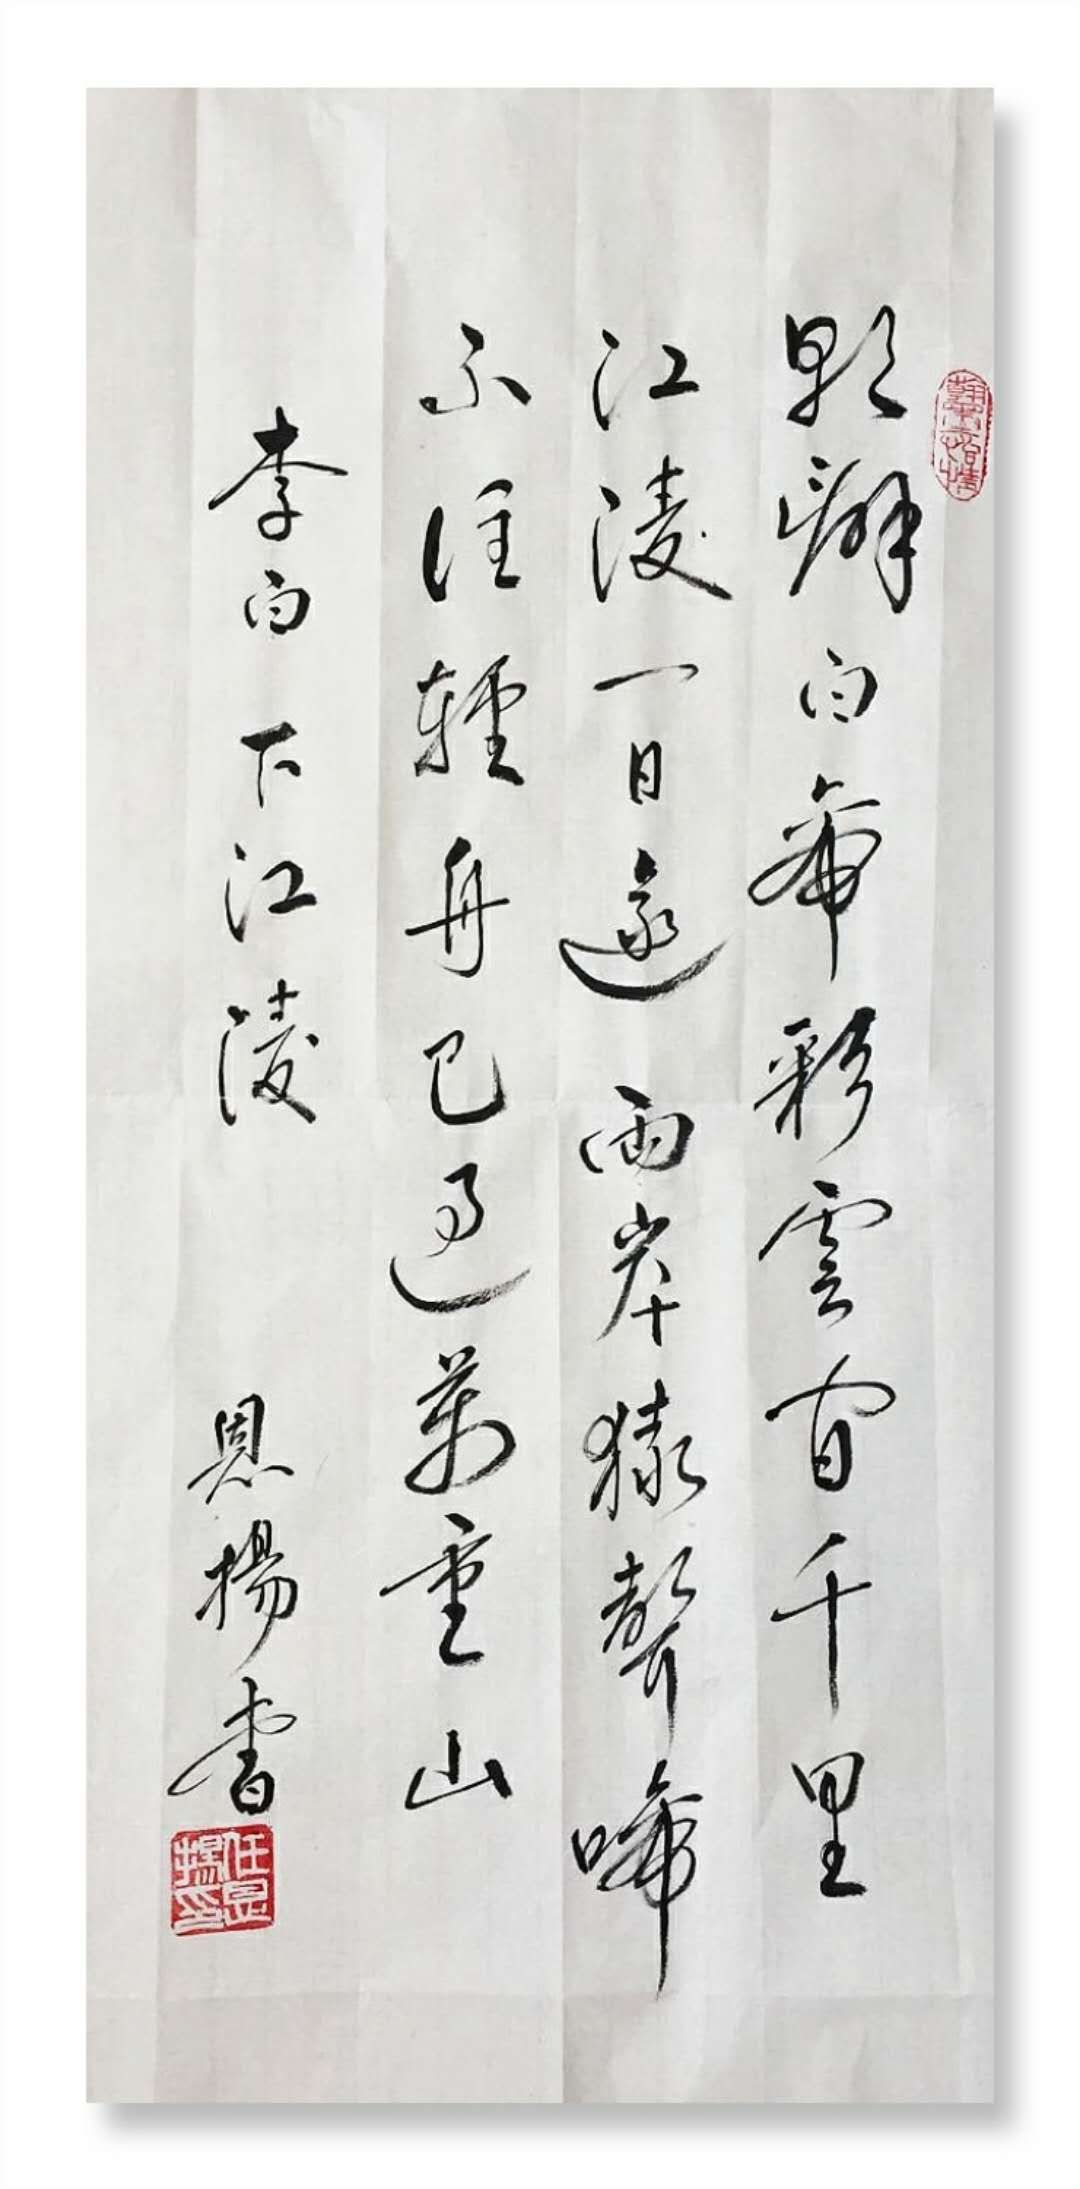 朝辭白帝彩雲間千里
江陵一日還兩岸猿聲啼
不住輕舟已過萬重山
李白下江陵 恩揚書
任恩揚印